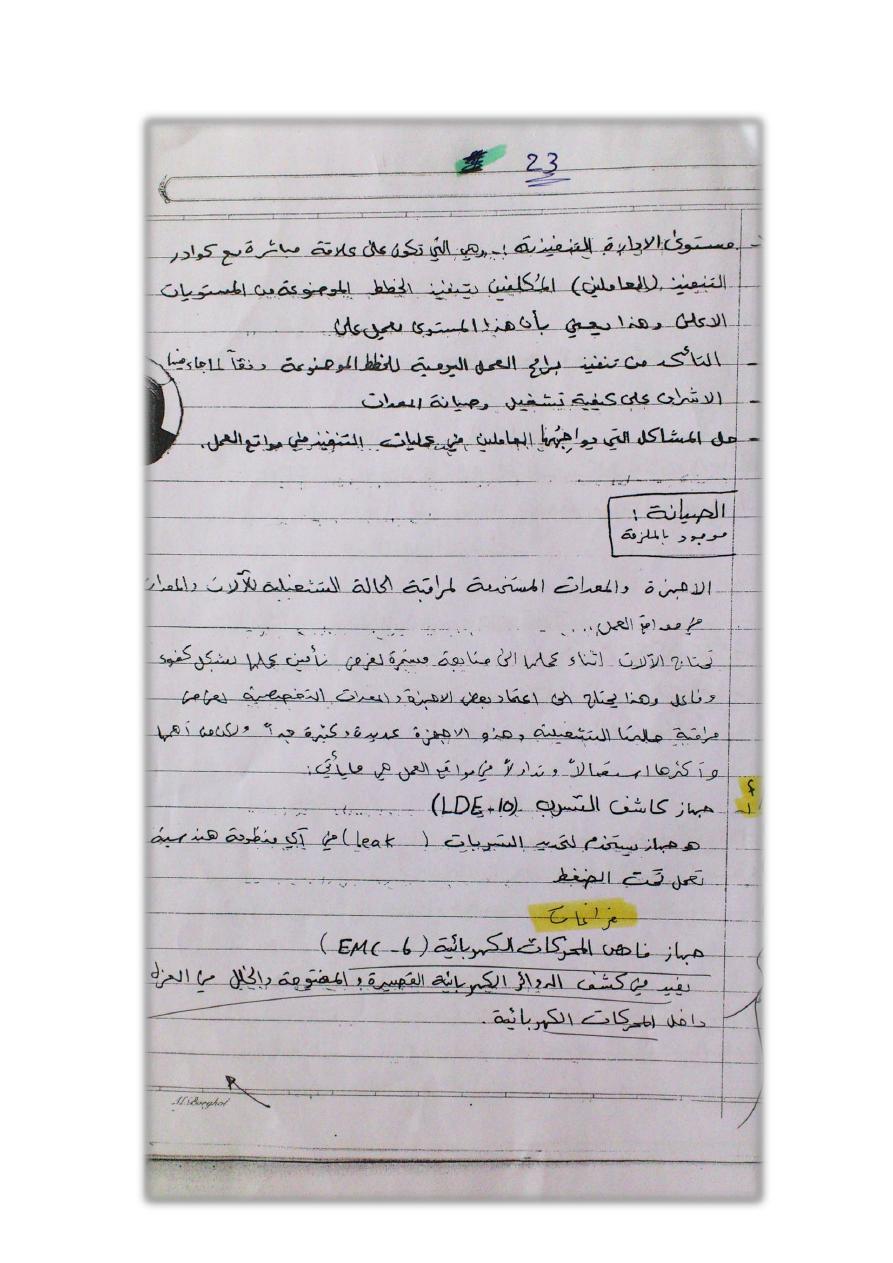 23
- مستوى الادارة التنفيذية :- وهي التي تكون على علاقة مباشرة مع كوادر
التنفيذ (العاملين) المكلفين بتنفيذ الخطط الموضوعة من المستويات
الاعلى وهذا يعني بأن هذا المستوى يعمل على
- التأكد من تنفيذ برامج العمل اليومية للخطط الموضوعة وفقاً لما جاء فيها
- الاشراف على كيفية تشغيل وصيانة المعدات
- حل المشاكل التي يواجهها العاملين في عمليات التنفيذ في مواقع العمل.
الصيانة :
موجود بالملزمة
الاجهزة والمعدات المستخدمة لمراقبة الحالة التشغيلية للآلات والمعدات
في مواقع العمل.
تحتاج الآلات اثناء عملها الى متابعة مستمرة لغرض تأمين عملها بشكل كفوء
وفاعل وهذا يحتاج الى اعتماد بعض الاجهزة والمعدات التخصصية لغرض
مراقبة حالتها التشغيلية وهذه الاجهزة عديدة وكثيرة جداً ولكن من أهمها
وأكثرها استعمالاً وتداولاً في مواقع العمل هي مايأتي:
جهاز كاشف التسرب (LDE-10)
هو جهاز يستخدم لتحديد التسربات (leak) في أي منظومة هندسية
تعمل تحت الضغط
فراغات
جهاز فاحص المحركات الكهربائية (EMC-6)
يفيد في كشف الدوائر الكهربائية القصيرة والمفتوحة والخلل في العزل
داخل المحركات الكهربائية.
M.Borghol